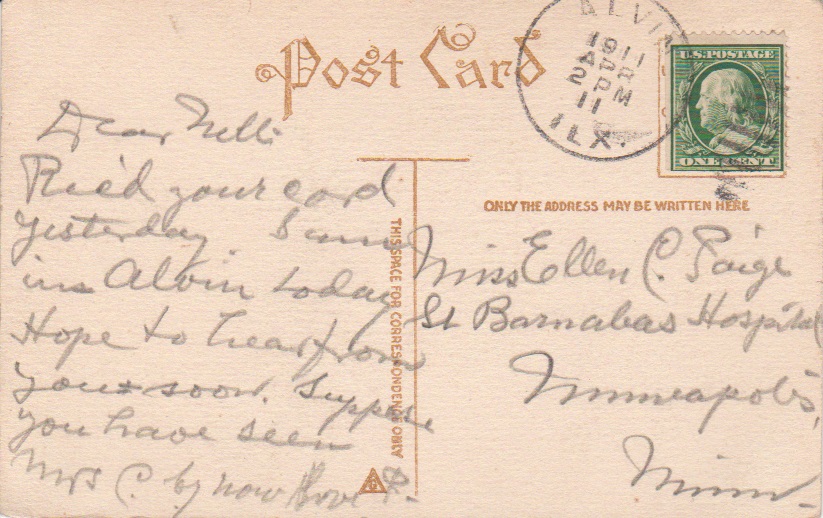 Post Card
ALVIN
1911
APR
2 PM
11
U.S. POSTAGE
ONE CENT
Dear Nell:
Rec'd your card
yesterday.
in Alvin today
Hope to hear from
you soon. Suppose
you have seen
Mrs C. by now Love P.
THIS SPACE FOR CORRESPONDENCE ONLY
ONLY THE ADDRESS MAY BE WRITTEN HERE
Miss Ellen C. Paige
St Barnabas Hospital
Minneapolis,
Minn.